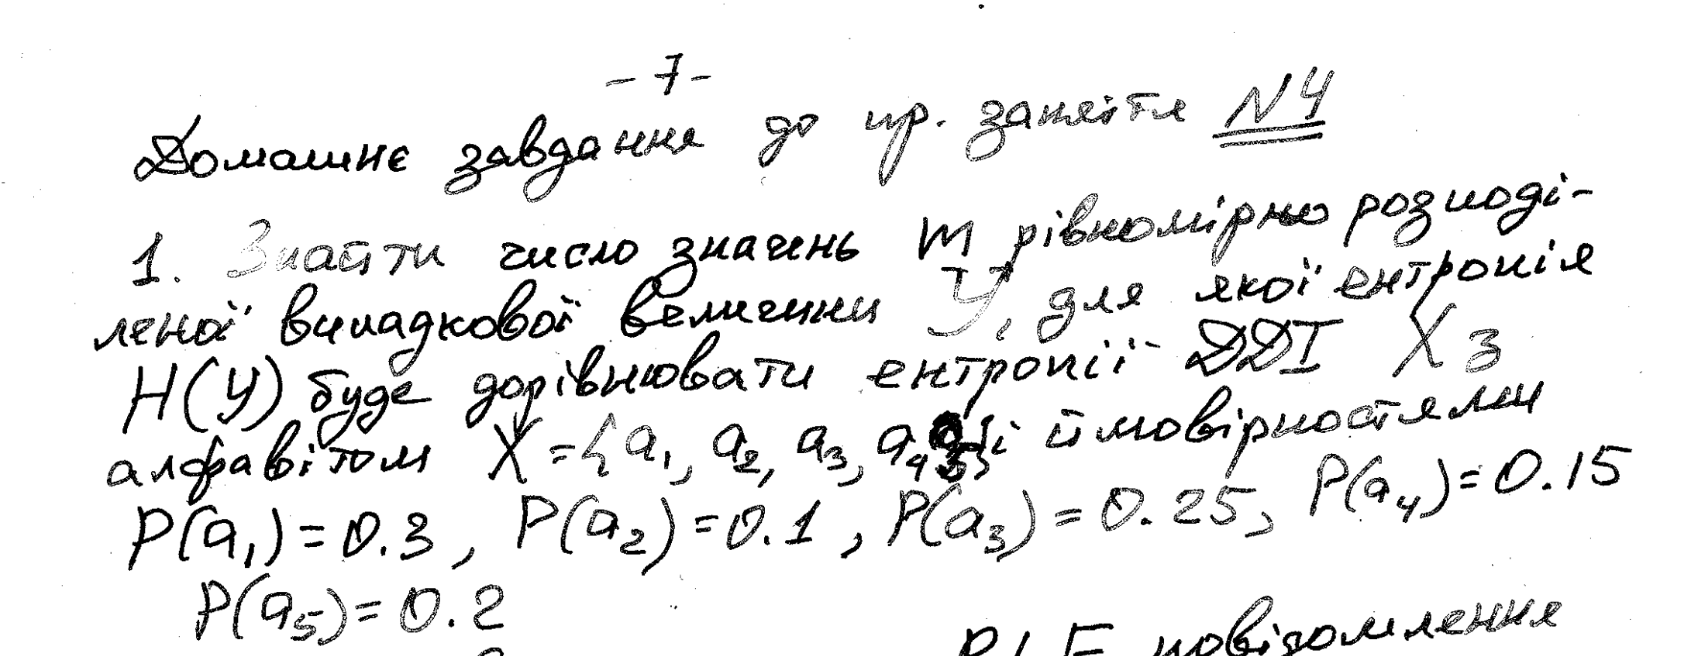 -7-
Домашнє завдання до пр. заняття №4
1. Знайти число значень m рівномірно розподі-
леної випадкової величини Y, для якої ентропія
H(Y) буде дорівнювати ентропії ДДІ X з
алфавітом X={a1, a2, a3, a4, a5} і ймовірностями
P(a1)=0.3, P(a2)=0.1, P(a3)=0.25, P(a4)=0.15
P(a5)=0.2
повідомлення